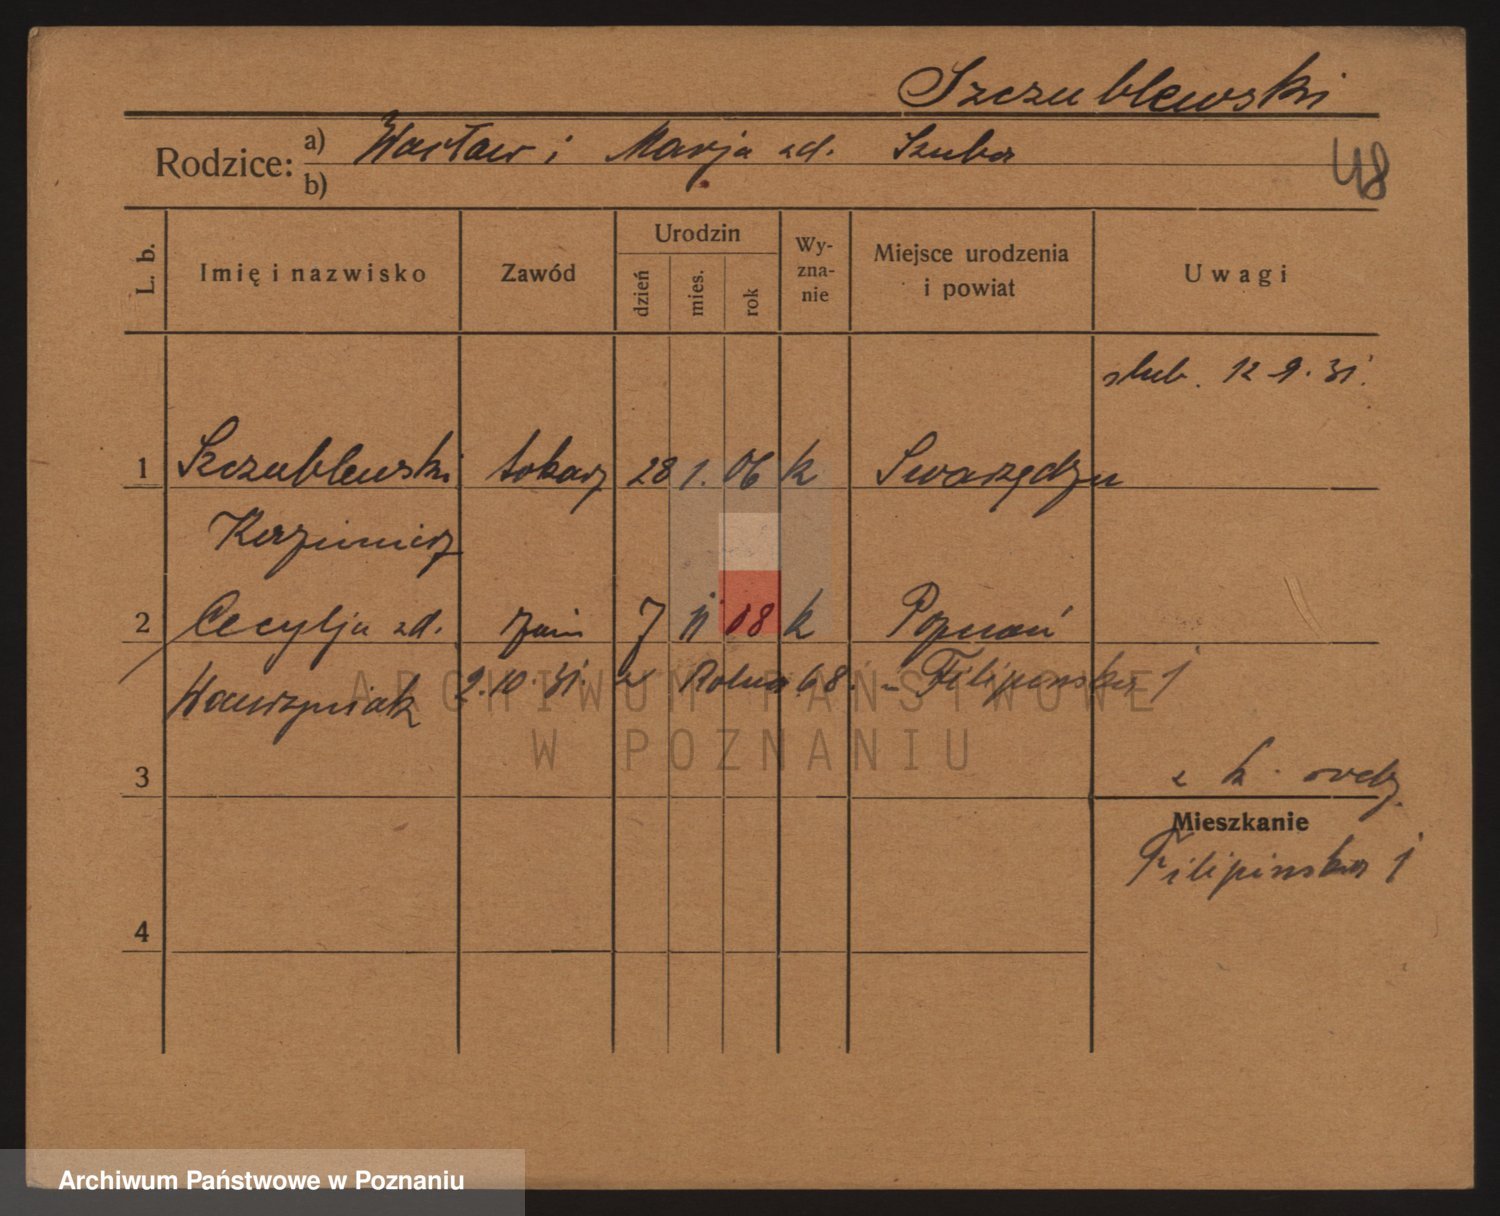 Szczublewski
Rodzice: a) Wacław i Marja zd. Szuba
b)
48
L. b.
Imię i nazwisko
Zawód
Urodzin
dzień
mies.
rok
Wy-
zna-
nie
Miejsce urodzenia
i powiat
Uwagi
slub. 12.9.31.
1 Szczublewski tokarz 28 1. 06 k Swarzędzu
Kazimierz
2 Cecylja zd. żona 7 11 08 k Poznań
Wawrzyniak 2.10.31. z Rolna 68. - Filipinska 1
ARCHIWUM PAŃSTWOWE
W POZNANIU
3
z k.
Mieszkanie
Filipinska 1
4
Archiwum Państwowe w Poznaniu